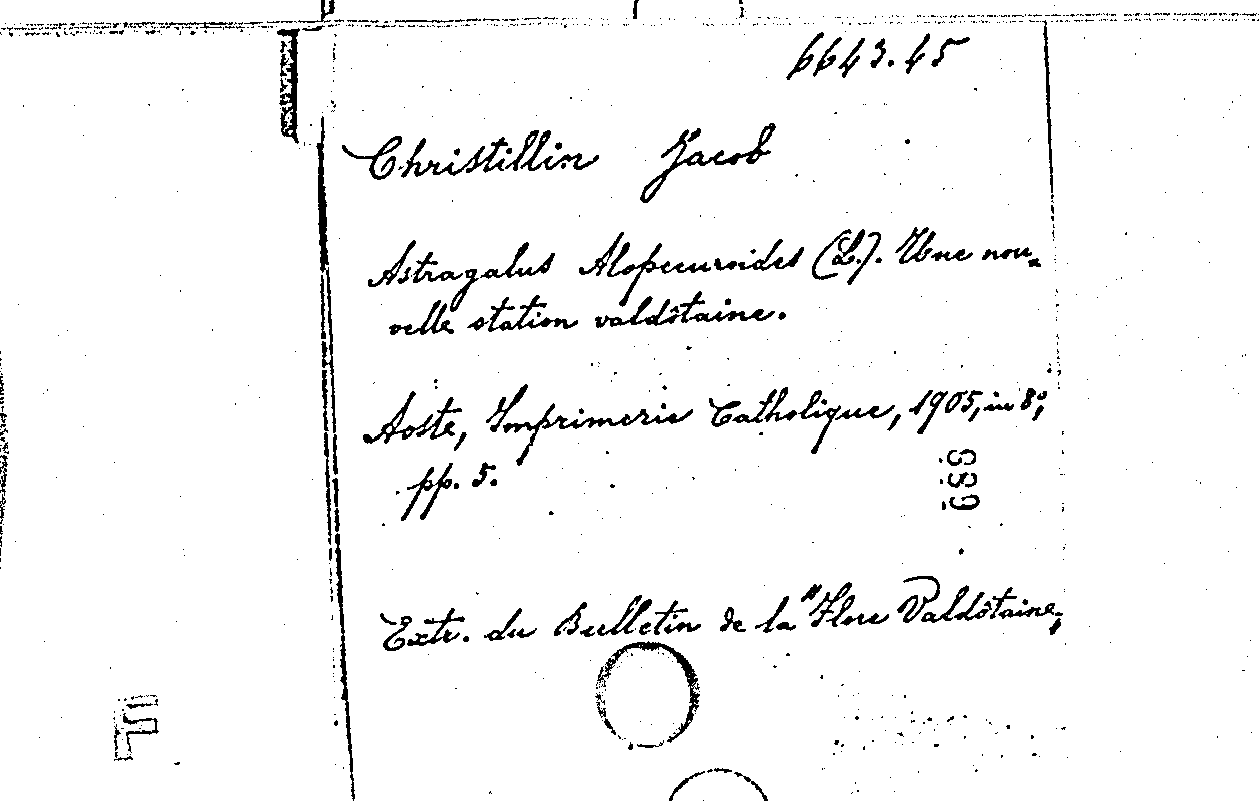 6643.45
Christillin Jacob
Astragalus Alopecuroides (L.). Une nou-
velle station valdôtaine.
Aoste, Imprimerie Catholique, 1905, in 8°,
pp. 5.
689
Extr. du Bulletin de la "Flore Valdôtaine„
F